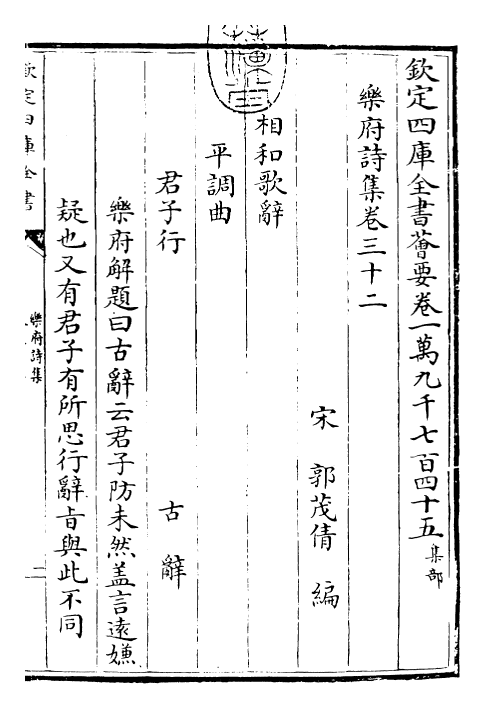 欽定四庫全書薈要卷一萬九千七百四十五 集部
樂府詩集卷三十二
宋 郭茂倩 編
相和歌辭
平調曲
君子行 古辭
樂府解題曰古辭云君子防未然盖言遠嫌
疑也又有君子有所思行辭旨與此不同
欽定四庫全書
樂府詩集